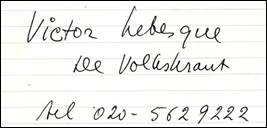 Victor Lebesque
De Volkskrant
tel 020-5629222